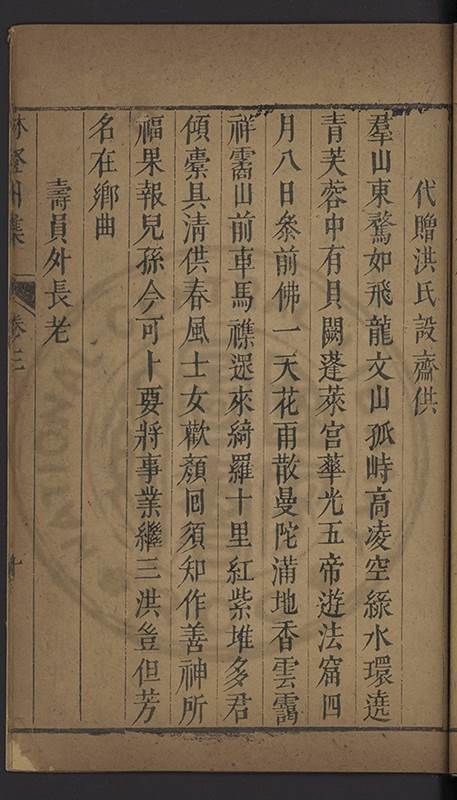 代贈洪氏設齋供
羣山東騖如飛龍文山孤峙高凌空綠水環遶
青芙蓉中有貝闕蓬萊宮華光五帝遊法窟四
月八日叅前佛一天花雨散曼陀滿地香雲靄
祥霱山前車馬襍遝來綺羅十里紅紫堆多君
傾橐具清供春風士女歡顏囘須知作善神所
福果報兒孫今可卜要將事業繼三洪豈但芳
名在鄉曲
壽員外長老
集 卷三 十